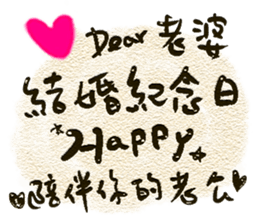 Dear 老婆
結婚紀念日
Happy
陪伴你的老公